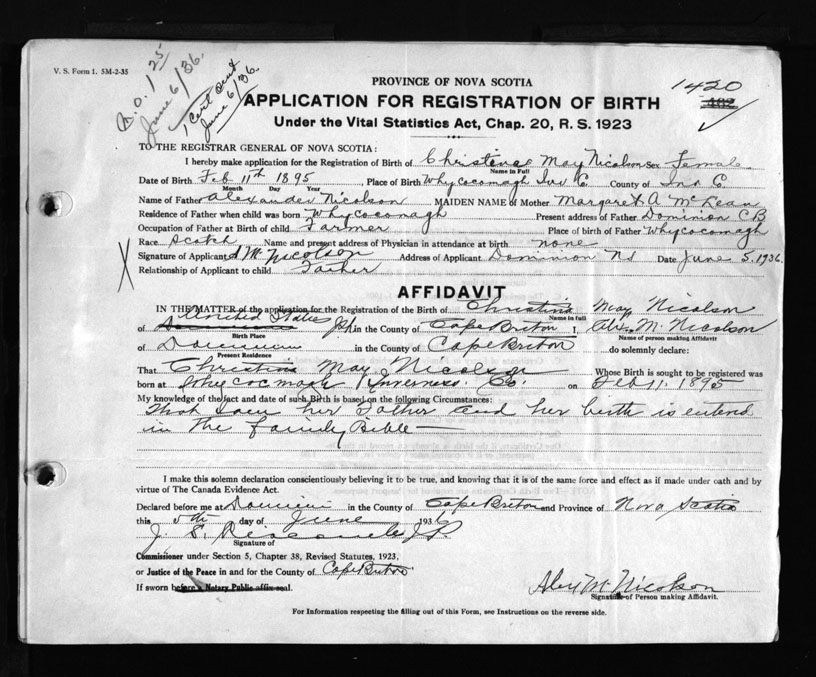 V. S. Form 1. 5M-2-35
1 25
June 6/36.
1 Cert Sent
June 6/36.
1420
PROVINCE OF NOVA SCOTIA
APPLICATION FOR REGISTRATION OF BIRTH
Under the Vital Statistics Act, Chap. 20, R. S. 1923
TO THE REGISTRAR GENERAL OF NOVA SCOTIA:
I hereby make application for the Registration of Birth of Christina May Nicolson Sex Female
Name in Full
Date of Birth Feb 11th 1895, Place of Birth Whycocomagh Inv C. County of Inv C
Month Day Year
Name of Father Alexander Nicolson MAIDEN NAME of Mother Margaret A McLean
Residence of Father when child was born Whycocomagh Present address of Father Dominion C B
Occupation of Father at Birth of child Farmer Place of birth of Father Whycocomagh
Race Scotch Name and present address of Physician in attendance at birth none
Signature of Applicant A M Nicolson Address of Applicant Dominion NS Date June 5. 1936.
Relationship of Applicant to child Father
AFFIDAVIT
IN THE MATTER of the application for the Registration of the Birth of Christina May Nicolson
Name in Full
United States
of Dominion in the County of Cape Breton I, Alex M. Nicolson
Birth Place Name of person making Affidavit
of Dominion in the County of Cape Breton do solemnly declare:
Present Residence
That Christina May Nicolson Whose Birth is sought to be registered was
born at Whycocomagh Inverness. Co. on Feb 11. 1895
My knowledge of the fact and date of such Birth is based on the following Circumstances:
That I am her Father and her birth is enterd
in the family Bible
I make this solemn declaration conscientiously believing it to be true, and knowing that it is of the same force and effect as if made under oath and by
virtue of The Canada Evidence Act.
Declared before me at Dominion in the County of Cape Breton and Province of Nova Scotia
this 5th day of June 1936
J. S. J.P.
Signature of
Commissioner under Section 5, Chapter 38, Revised Statutes, 1923,
or Justice of the Peace in and for the County of Cape Breton
If sworn before a Notary Public affix seal.
Alex M Nicolson
Signature of Person making Affidavit.
For Information respecting the filling out of this Form, see Instructions on the reverse side.